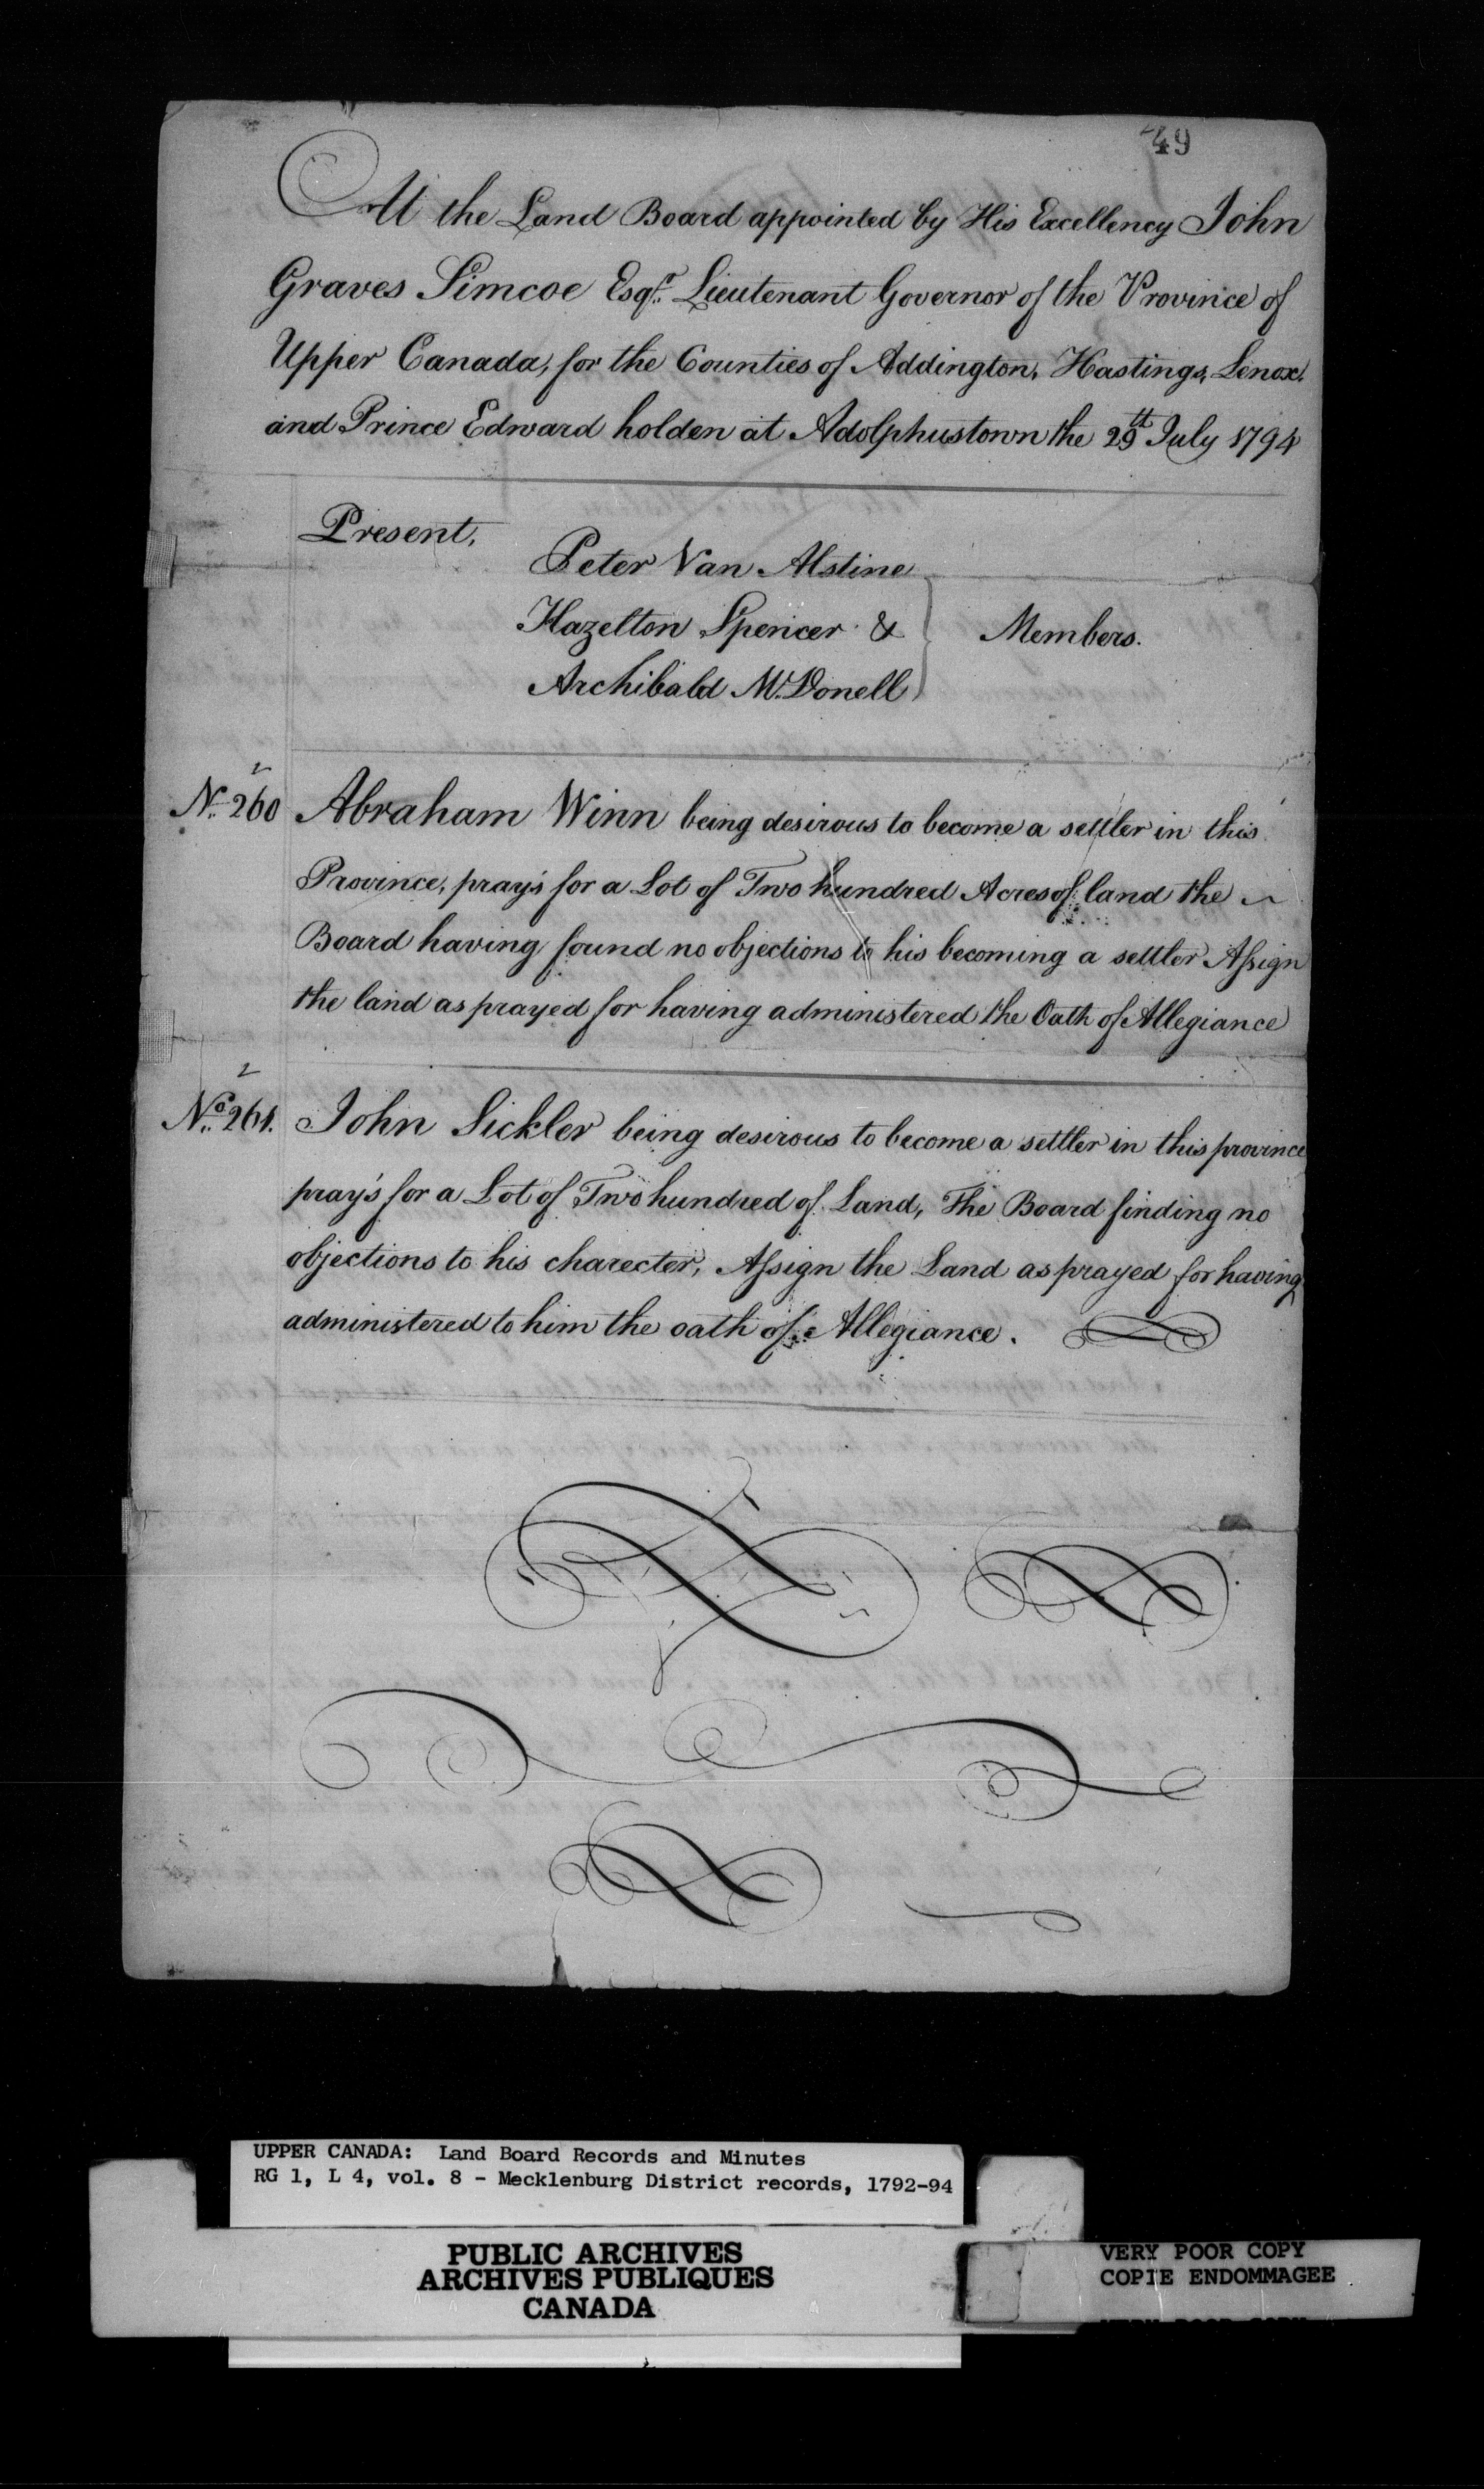 49
At the Land Board appointed by His Excellency John
Graves Simcoe Esqr. Lieutenant Governor of the Province of
Upper Canada, for the Counties of Addington, Hastings, Lenox,
and Prince Edward holden at Adolphustown the 29th July 1794
Present,
Peter Van Alstine
Hazelton Spencer &
Members.
Archibald McDonell
2
No. 260 Abraham Winn being desirous to become a settler in this
Province, pray's for a Lot of Two hundred Acres of land the
Board having found no objections to his becoming a settler Aſsign
the land as prayed for having administered the Oath of Allegiance
2
No. 261. John Sickler being desirous to become a settler in this province
pray's for a Lot of Two hundred of Land, The Board finding no
objections to his charecter, Aſsign the Land as prayed for having
administered to him the oath of Allegiance.
UPPER CANADA: Land Board Records and Minutes
RG 1, L 4, vol. 8 - Mecklenburg District records, 1792-94
PUBLIC ARCHIVES
ARCHIVES PUBLIQUES
CANADA
VERY POOR COPY
COPIE ENDOMMAGEE
VERY POOR COPY